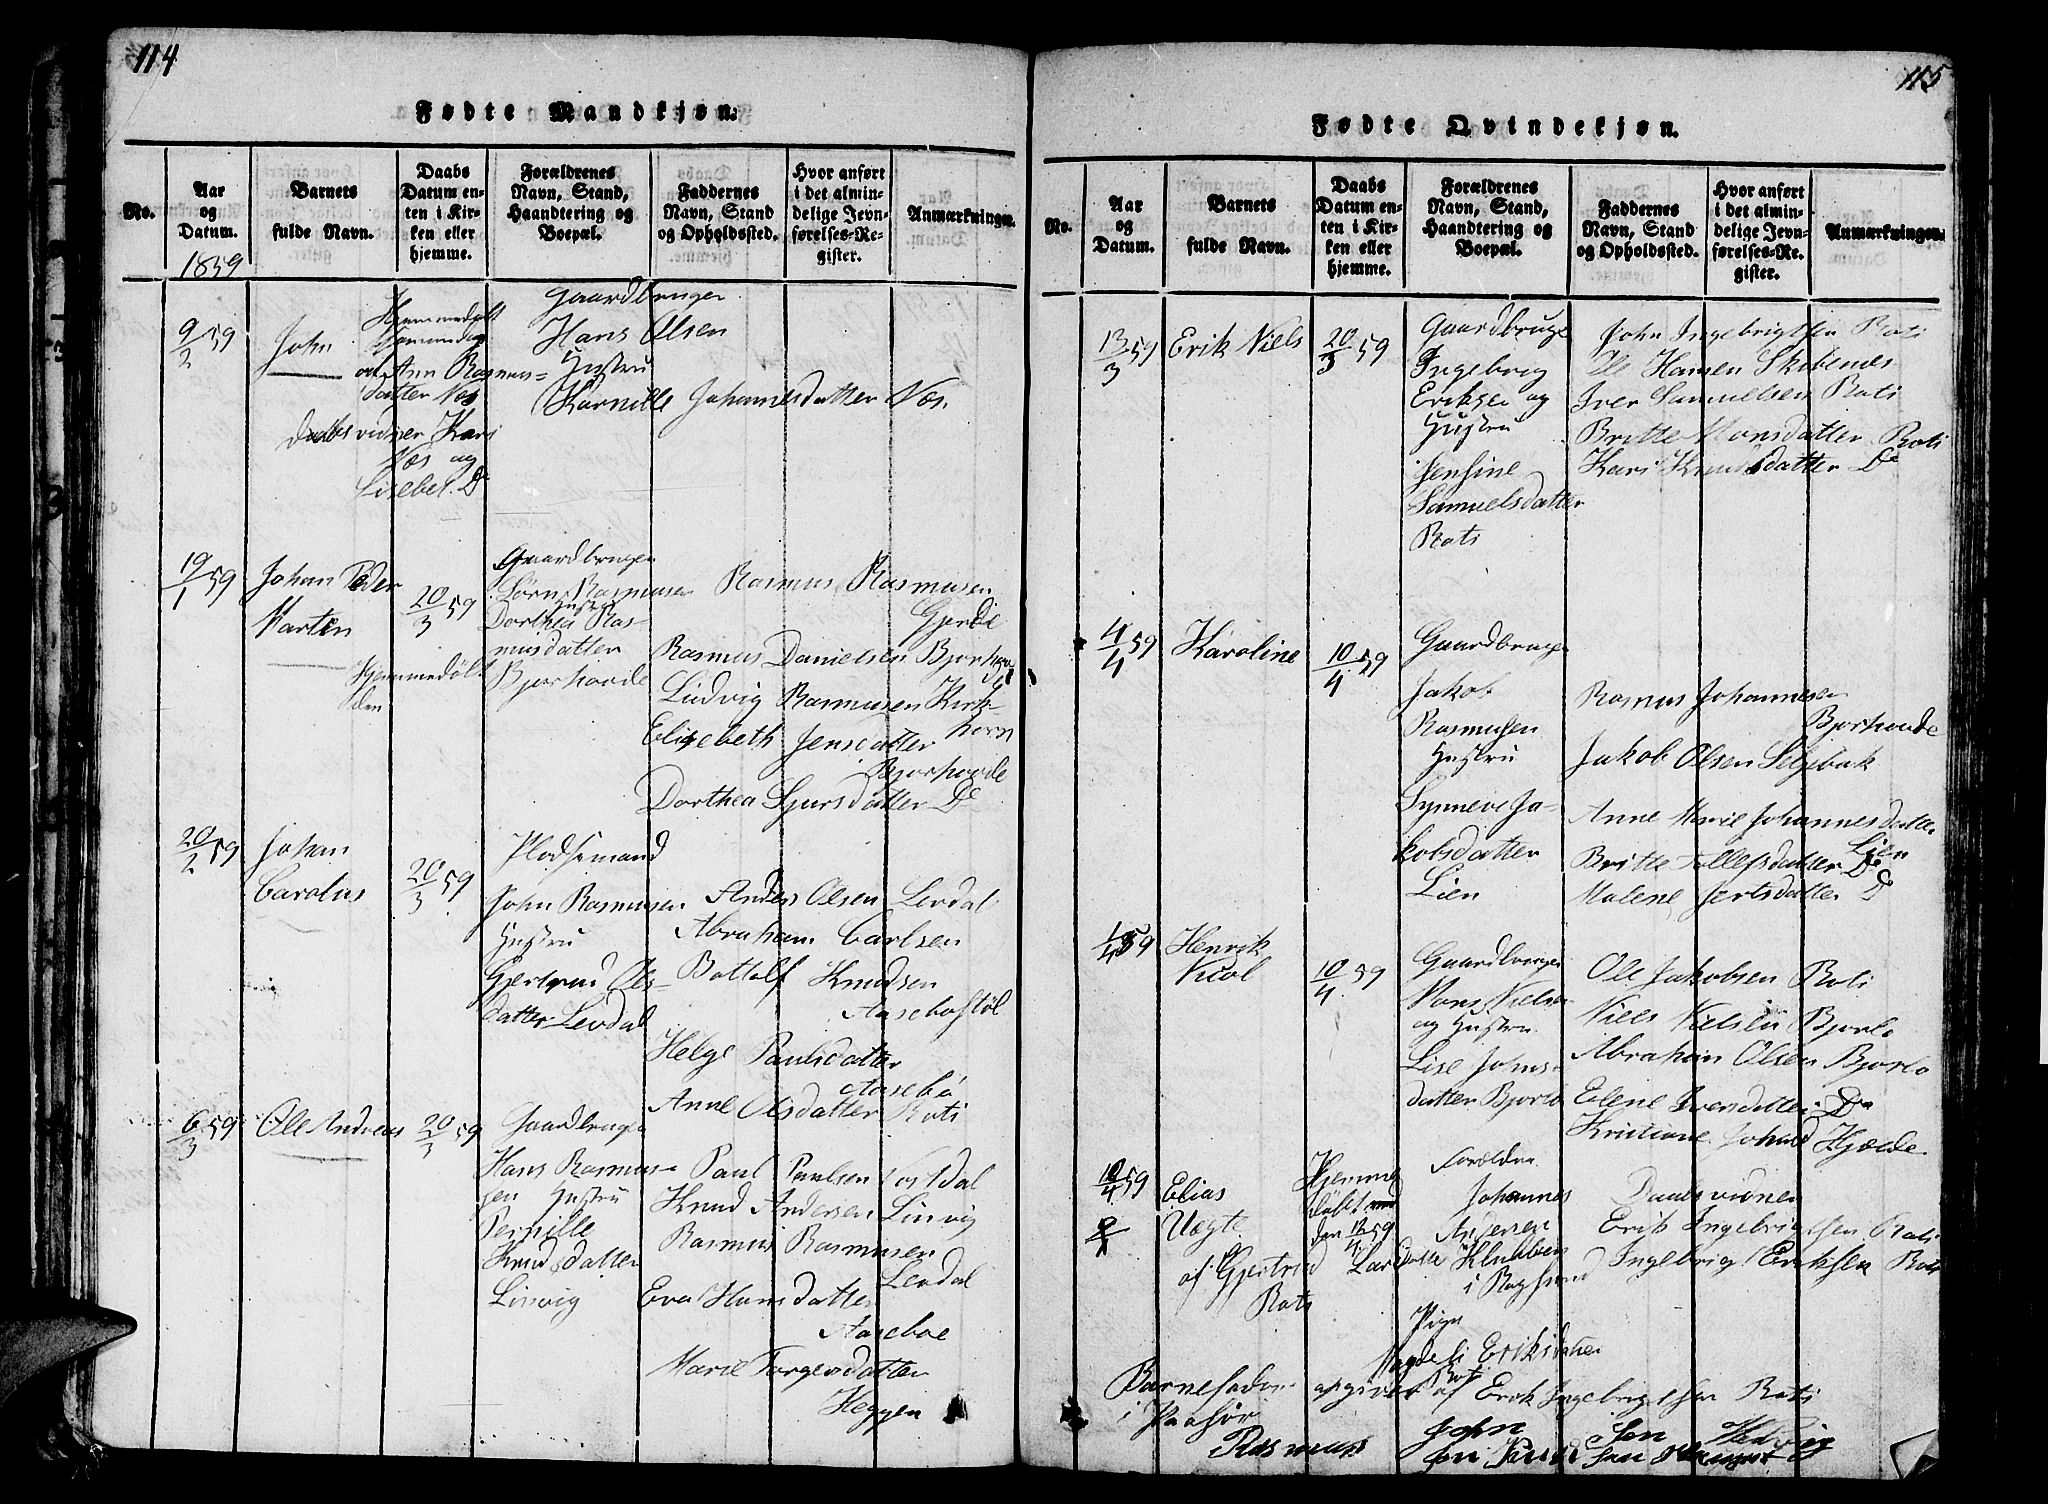 114
Fødte Mandkjøn.
No.
Aar
og
Datum.
Barnets
fulde Navn.
Daabs
Datum en-
ten i Kir-
ken eller
hjemme.
Forældrenes
Navn, Stand,
Haandtering og
Boepæl.
Faddernes
Navn, Stand
og Opholdssted.
Hvor anført
i det almin-
delige Jevn-
førelses-Re-
gister.
Anmærkninger.
1859
9/2 59
John
Hjemmedøbt
af Ann Rasmus-
datter Næs
daabsvidner Kari
Næs og
Lisebet D
Gaardbruger
Hans Olsen
Hustru
Karnille Johannesdatter Næs.
19/1 59
Johan Peder
Martin
Hjemmedøbt
den
20/3 59
Gaardbruger
Sørn Rasmusen
Hustru
Dorthea Ras-
musdatter
Bjorhovde
Rasmus Rasmusen
Gjerde
Rasmus Danielsen Bjorhov
Ludvig Rasmusen Kirk-
horn
Elisebeth Jensdatter
Bjorhovde
Dorthea Sjursdatter Do
20/2 59
Johan
Carolus
20/3 59
Pladsemand
John Rasmusen
Hustru
Gjertrud Ols-
datter Levdal
Anders Olsen Levdal
Abraham Carlsen
Bottolf Knudsen
Aasebøstøl
Helge Paulsdatter
Aasebø
Anne Olsdatter Roti
6/3 59
Ole Andreas
20/3 59
Gaardbruger
Hans Rasmus-
sen Hustru
Pernille
Knudsdatter
Linvig
Paul Paulsen
Knud Andersen Linvig
Rasmus Rasmusen
Levdal
Eva Hansdatter
Aaseboe
Marie Torgersdatter
Heggen
115
Fødte Qvindekjøn.
No.
Aar
og
Datum.
Barnets
fulde Navn.
Daabs
Datum en-
ten i Kir-
ken eller
hjemme.
Forældrenes
Navn, Stand,
Haandtering og
Boepæl.
Faddernes
Navn, Stand
og Opholdssted.
Hvor anført
i det almin-
delige Jevn-
førelses-Re-
gister.
Anmærkninger.
13/3 59
Erik Niels
20/3 59
Gaardbruge
Ingebrig
Eriksen og
Hustru
Jensine
Samuelsdatter
Roti
John Ingebrigtsen Roti
Ole Hansen Skobenes
Iver Samuelsen Roti
Britte Monsdatter Roti
Kari Knudsdatter Do
4/4 59
Karoline
10/4 59
Gaardbruger
Jakob
Rasmusen
Hustru
Synneve Ja-
kobsdatter
Lien
Rasmus Johannesen
Bjorhovde
Jakob Olsen Seljebak
Anne Marie Johannesdatter
Lien
Britte Tollefsdatter Do
Malene Jertsdatter Do
1/4 59
Henrik
Nicol
10/4 59
Gaardbruger
Mons Nielsen
og Hustru
Lise Johns-
datter Bjorlo
Ole Jakobsen Roti
Niels Nielsen Bjorlo
Abraham Olsen Bjorlo
Elene Iversdatter Do
Kristiane Johnsd Hjelde
10/4 59
Elias
Uægte
af Gjertrud Larsdatte
Roti
Hjemme
døbt
den 12/4 59
Forældre
Johannes
Andersen
i Rogsund
Pige
Magdeli Eriksdatter
Roti
Daabsvidner
Erik Ingebrigtsen Roti
Ingebrig Eriksen Roti
Barnefader opgivet af Erik Ingebrigtsen Roti
Rasmus
John